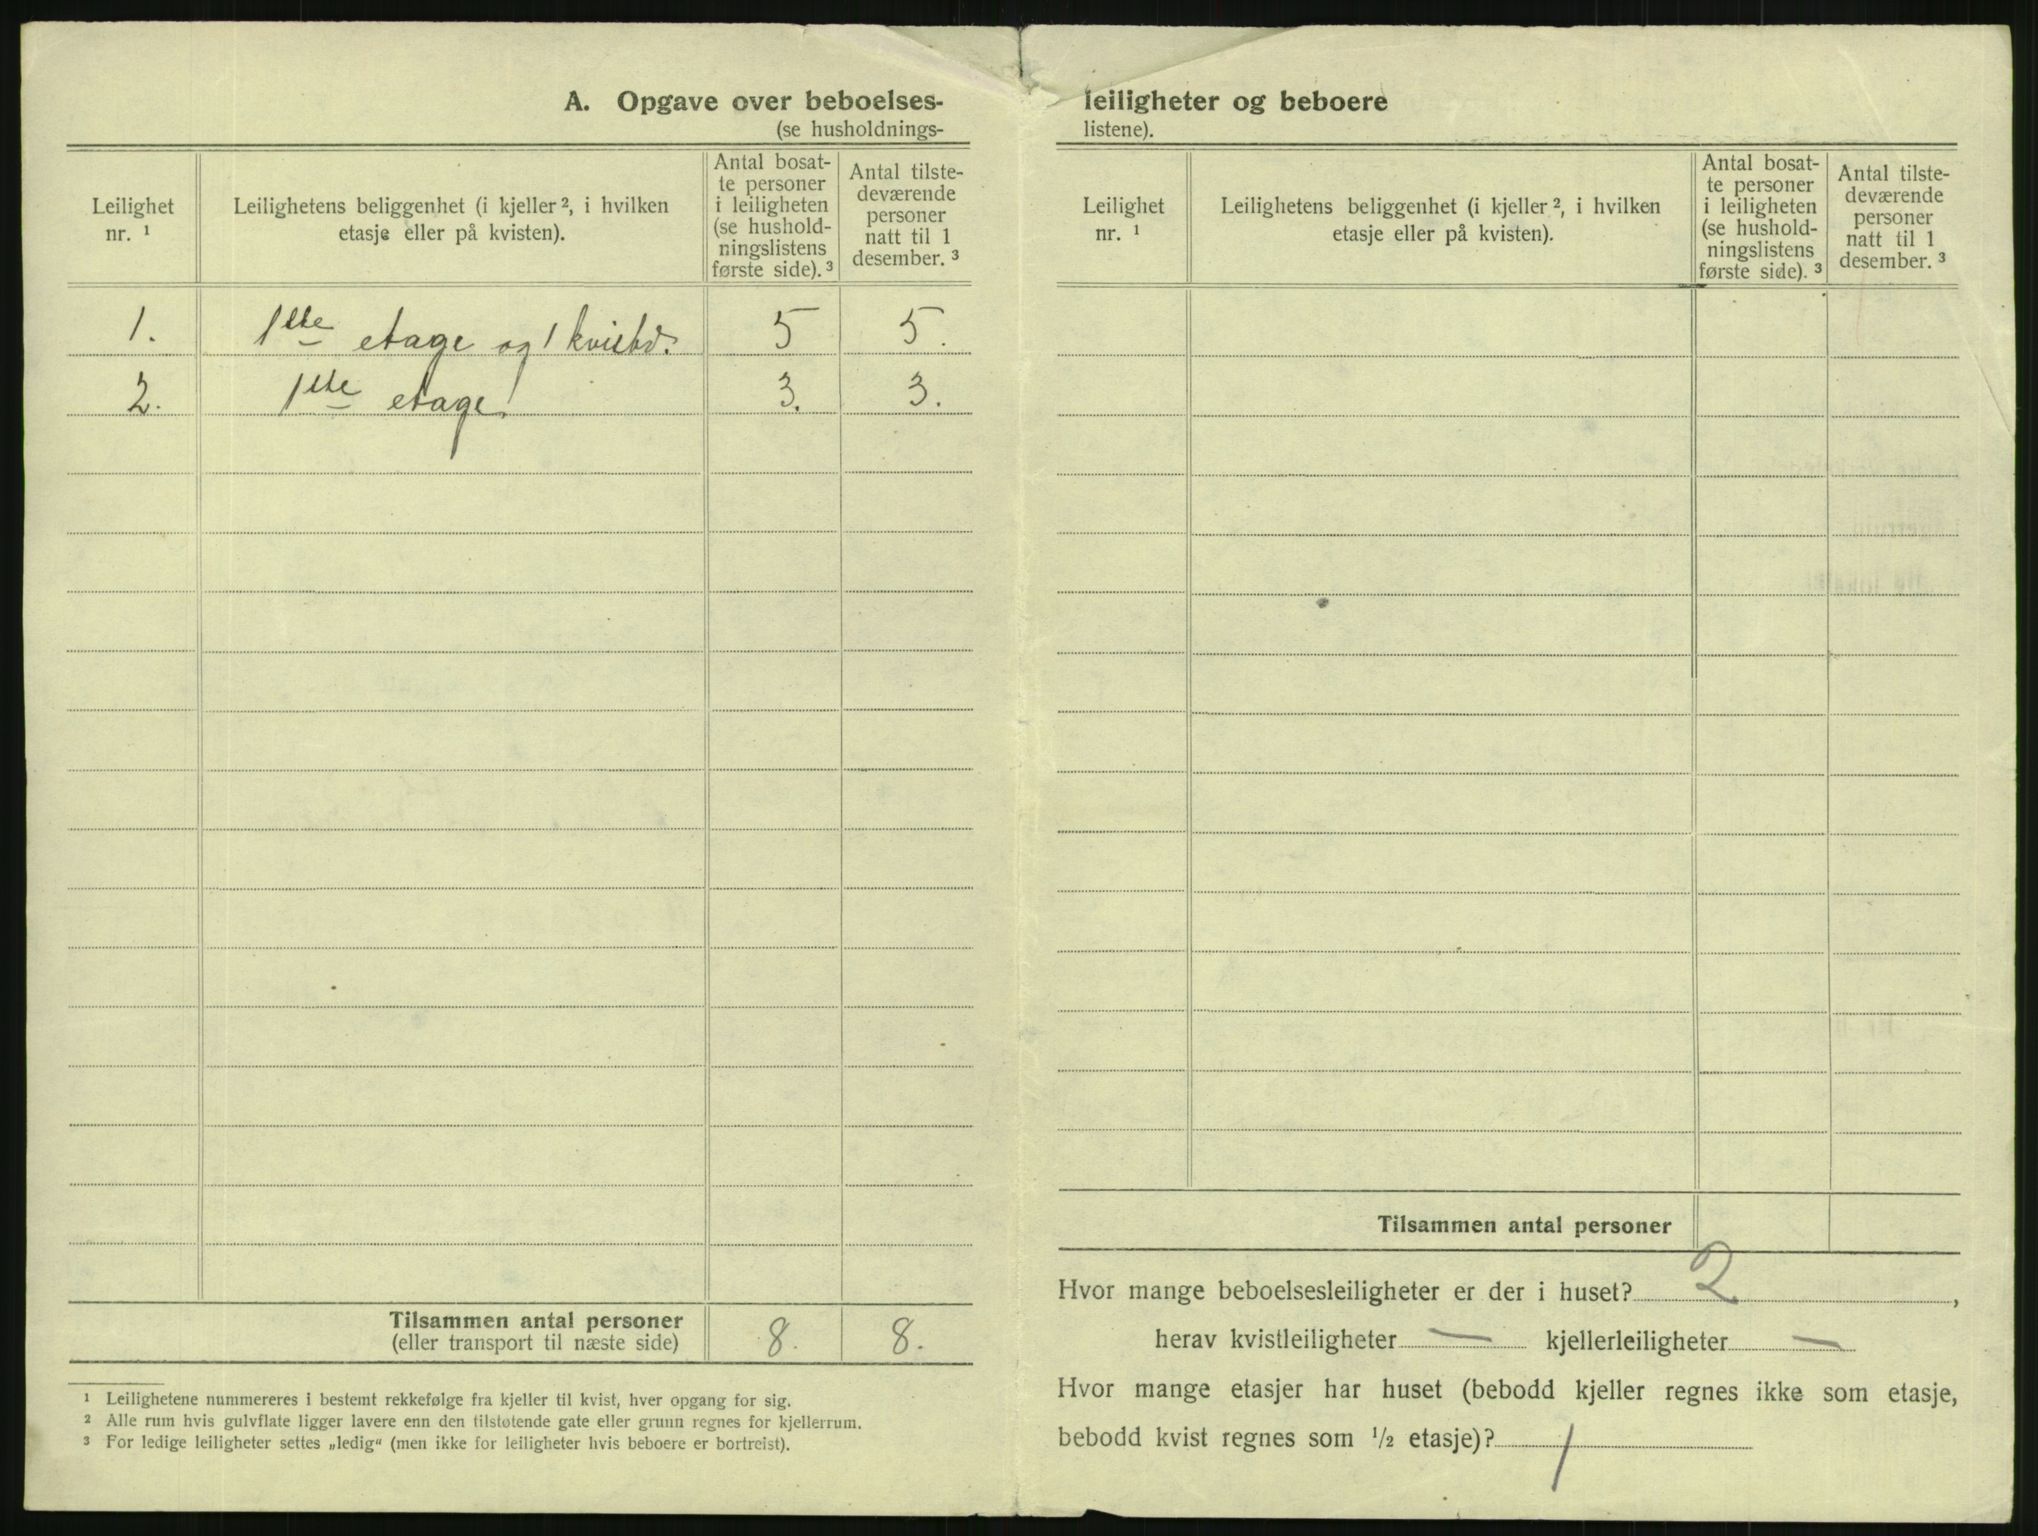 A. Opgave over beboelses-
(se husholdnings-
Leilighet
nr. ¹
Leilighetens beliggenhet (i kjeller ², i hvilken
etasje eller på kvisten).
Antal bosat-
te personer
i leiligheten
(se hushold-
ningslistens
første side). ³
Antal tilste-
deværende
personer
natt til 1
desember. ³
1. 1ste etage og 1 kvistv. 5 5.
2. 1ste etage 3. 3.
Tilsammen antal personer
(eller transport til næste side) 8. 8.
¹ Leilighetene nummereres i bestemt rekkefølge fra kjeller til kvist, hver opgang for sig.
² Alle rum hvis gulvflate ligger lavere enn den tilstøtende gate eller grunn regnes for kjellerrum.
³ For ledige leiligheter settes „ledig“ (men ikke for leiligheter hvis beboere er bortreist).
leiligheter og beboere
listene).
Leilighet
nr. ¹
Leilighetens beliggenhet (i kjeller ², i hvilken
etasje eller på kvisten).
Antal bosat-
te personer
i leiligheten
(se hushold-
ningslistens
første side). ³
Antal tilste-
deværende
personer
natt til 1
desember. ³
Tilsammen antal personer
Hvor mange beboelsesleiligheter er der i huset? 2,
herav kvistleiligheter — kjellerleiligheter —
Hvor mange etasjer har huset (bebodd kjeller regnes ikke som etasje,
bebodd kvist regnes som ½ etasje)? 1